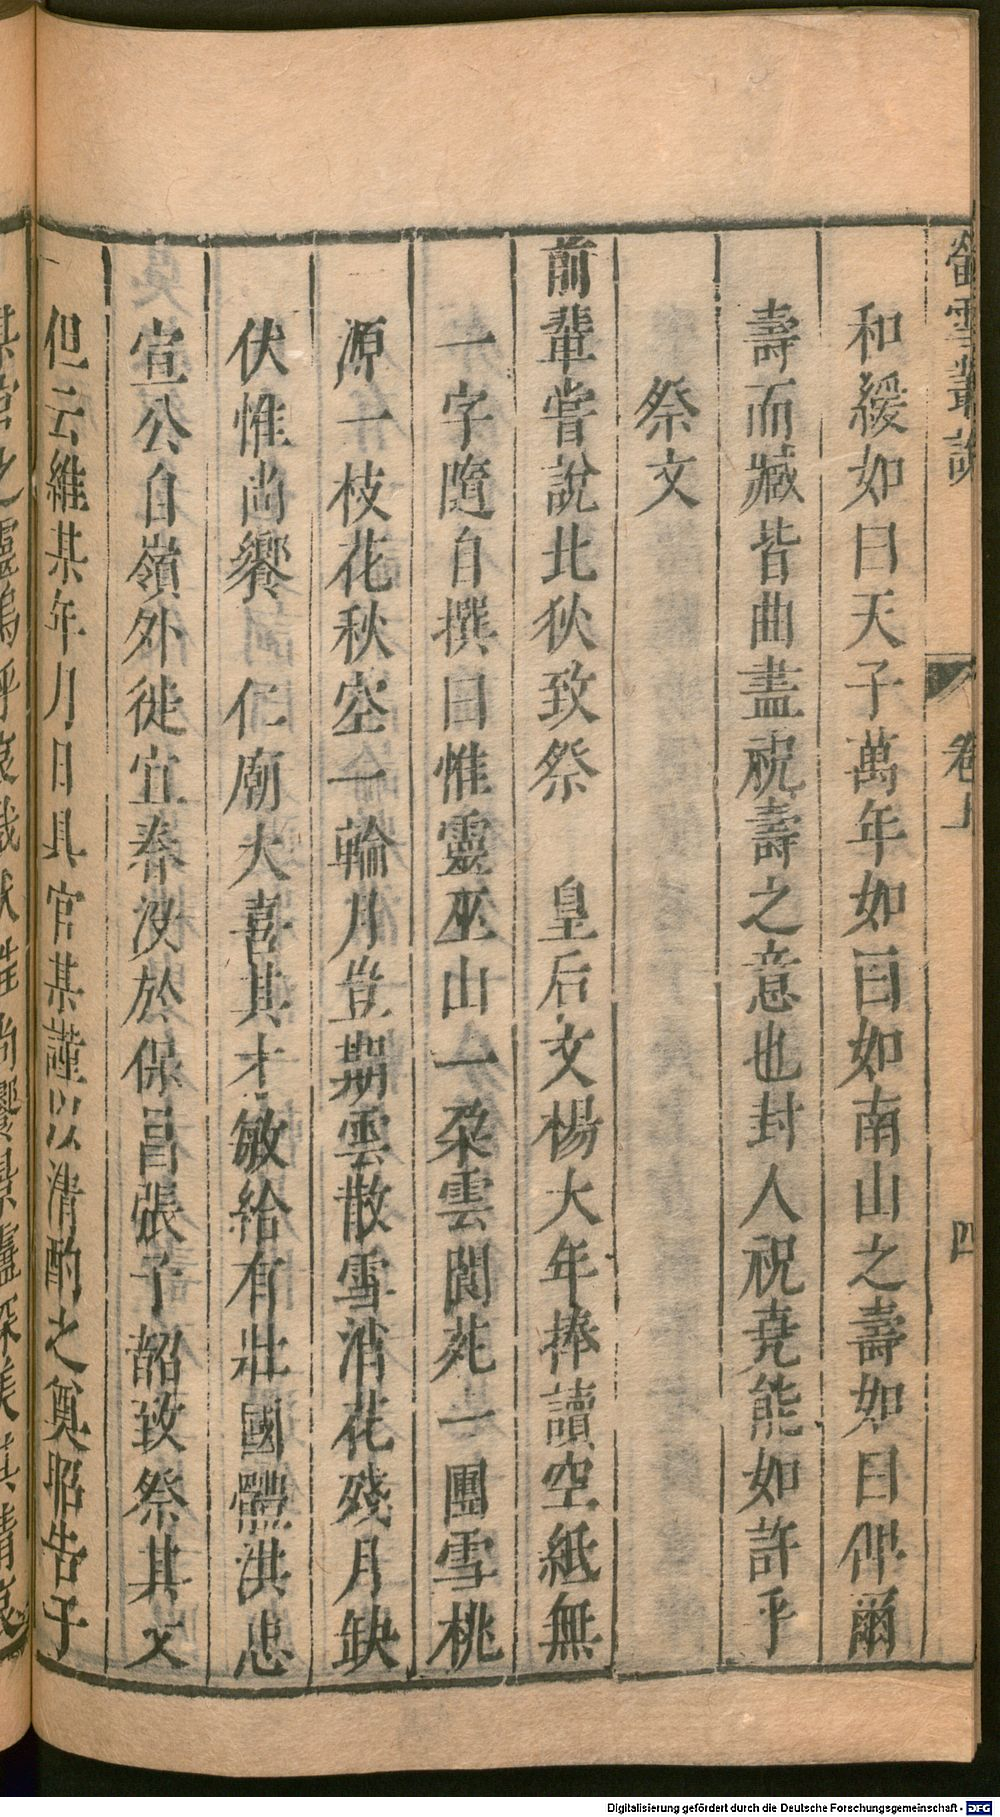 螢雪叢說 卷上 四
和緩如曰天子萬年如曰如南山之壽如曰俾爾
壽而臧皆曲盡祝壽之意也封人祝堯能如許乎
祭文
前輩嘗說北狄致祭 皇后文楊大年捧讀空紙無
一字隨自撰曰惟靈巫山一朶雲閬苑一團雪桃
源一枝花秋空一輪月豈期雲散雪消花殘月缺
伏惟尚饗 仁廟大喜其才敏給有壯國體洪忠
宣公自嶺外徙宜春沒於保昌張子韶致祭其文
但云維某年月日具官某謹以清酌之奠昭告于
某官之靈嗚呼哀哉伏惟尚饗景盧深美其情哀
Digitalisierung gefördert durch die Deutsche Forschungsgemeinschaft - DFG